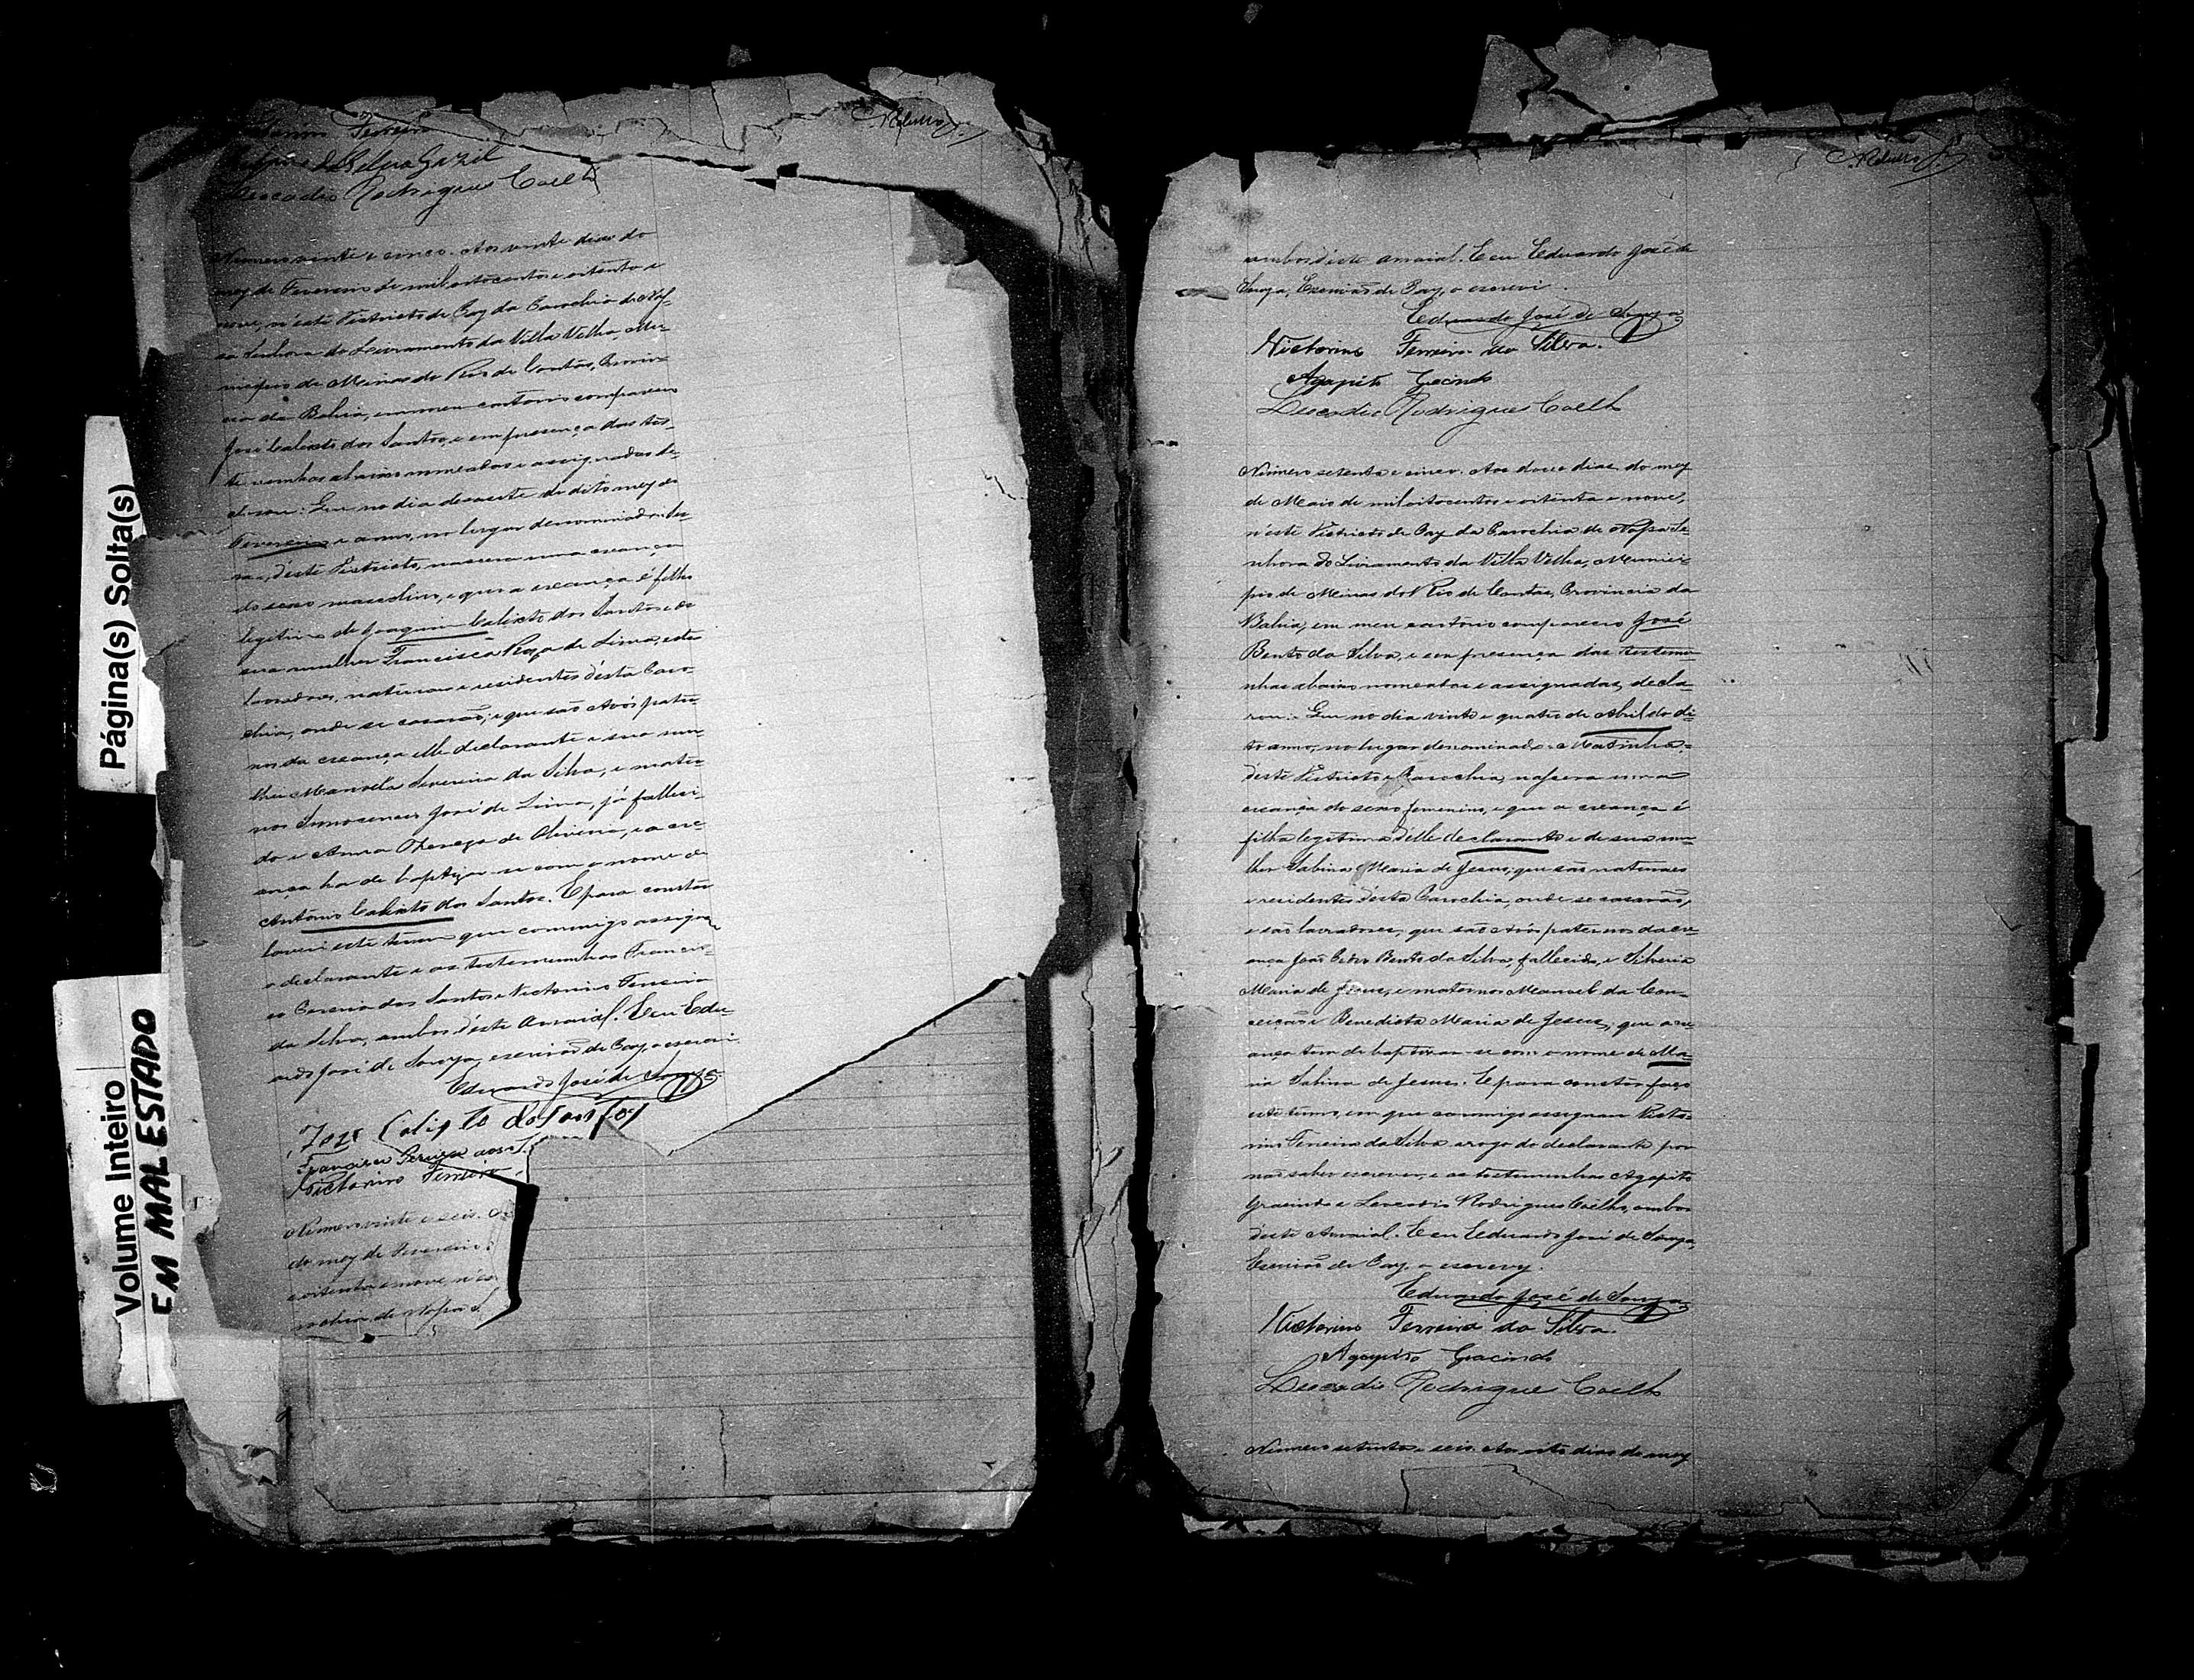 Página(s) Solta(s)
Volume Inteiro
EM MAL ESTADO
Ferreira
da Silva Gazil
Leocadio Rodrigues Coelh
Rebello
Numero vinte e cinco. Aos vinte dias do
mez de Fevereiro de mil oitocentos e oitenta e
nove, n'este Districto de Paz da Parochia de Nos-
sa Senhora do Livramento da Villa Velha, Mu-
nicipio de Minas do Rio de Contas, Provin-
cia da Bahia, em meu cartorio compareceo
José Calixto dos Santos, e em presença das tes-
temunhas abaixo nomeadas e assignadas de-
clarou: Que no dia desasete do dito mez de
Fevereiro e anno, no lugar denominado
d'este Districto, nascera uma creança
do sexo masculino, e que a creança é filho
legitimo de Joaquim Calixto dos Santos e de
sua mulher Francisca Roza de Lima, estes
lavradores, naturaes e residentes d'esta Paro-
chia, onde se casarão; e que são Avós pater-
nos da creança elle declarante e sua mu-
lher Manoela Severina da Silva, e mater-
nos Innocencio José de Lima, já falleci-
do e Anna Thereza de Oliveira, e a cre-
ança ha de baptizar-se com o nome de
Antonio Calixto dos Santos. E para constar
lavrei este termo que commigo assigna
o declarante e as testemunhas Francis-
co Pereira dos Santos e Victorino Ferreira
da Silva, ambos d'este Arraial. E eu Edu-
ardo José de Souza, escrivão de Paz, o escrevi.
Eduardo José de Souza
Joze Calisto do Santos
Francisco Pereira dos S
Victorino Ferreira
Numero vinte e seis.
do mez de Fevereiro
e oitenta e nove, n'es
rochia de Nossa S
Rebello
ambos d'este arraial. E eu Eduardo José de
Souza, Escrivão de Paz, o escrevi.
Eduardo José de Souza
Victorino Ferreira da Silva.
Agapito Gracindo
Leocadio Rodrigues Coelh
Numero setenta e cinco. Aos doze dias do mez
de Maio de mil oitocentos e oitenta e nove,
n'este Districto de Paz da Parochia de Nossa Se-
nhora do Livramento da Villa Velha, Munici-
pio de Minas do Rio de Contas, Provincia da
Bahia, em meu cartorio compareceo José
Bento da Silva, e em presença das testemu-
nhas abaixo nomeadas e assignadas, decla-
rou: Que no dia vinte e quatro de Abril do di-
to anno, no lugar denominado = Matinha =
d'este Districto e Parochia, nascera uma
creança do sexo femenino, e que a creança é
filha legitima d'elle declarante e de sua mu-
lher Sabina Maria de Jesus; que são naturaes
e residentes d'esta Parochia, onde se casarão,
e são lavradores, que são Avós paternos da cre-
ança João Pedro Bento da Silva, fallecido, e Silveria
Maria de Jesus, e maternos Manoel da Con-
ceição e Benedicta Maria de Jesus, que a cre-
ança tem de baptizar-se com o nome de Ma-
ria Sabina de Jesus. E para constar faço
este termo, em que commigo assignam Victo-
rino Ferreira da Silva a rogo do declarante por
não saber escrever, e as testemunhas Agapito
Gracindo e Leocadio Rodrigues Coelho, ambos
d'este Arraial. E eu Eduardo José de Souza,
Escrivão de Paz, o escrevy.
Eduardo José de Souza
Victorino Ferreira da Silva.
Agapito Gracindo
Leocadio Rodrigues Coelh
Numero setenta e seis. Ao oito dias do mez